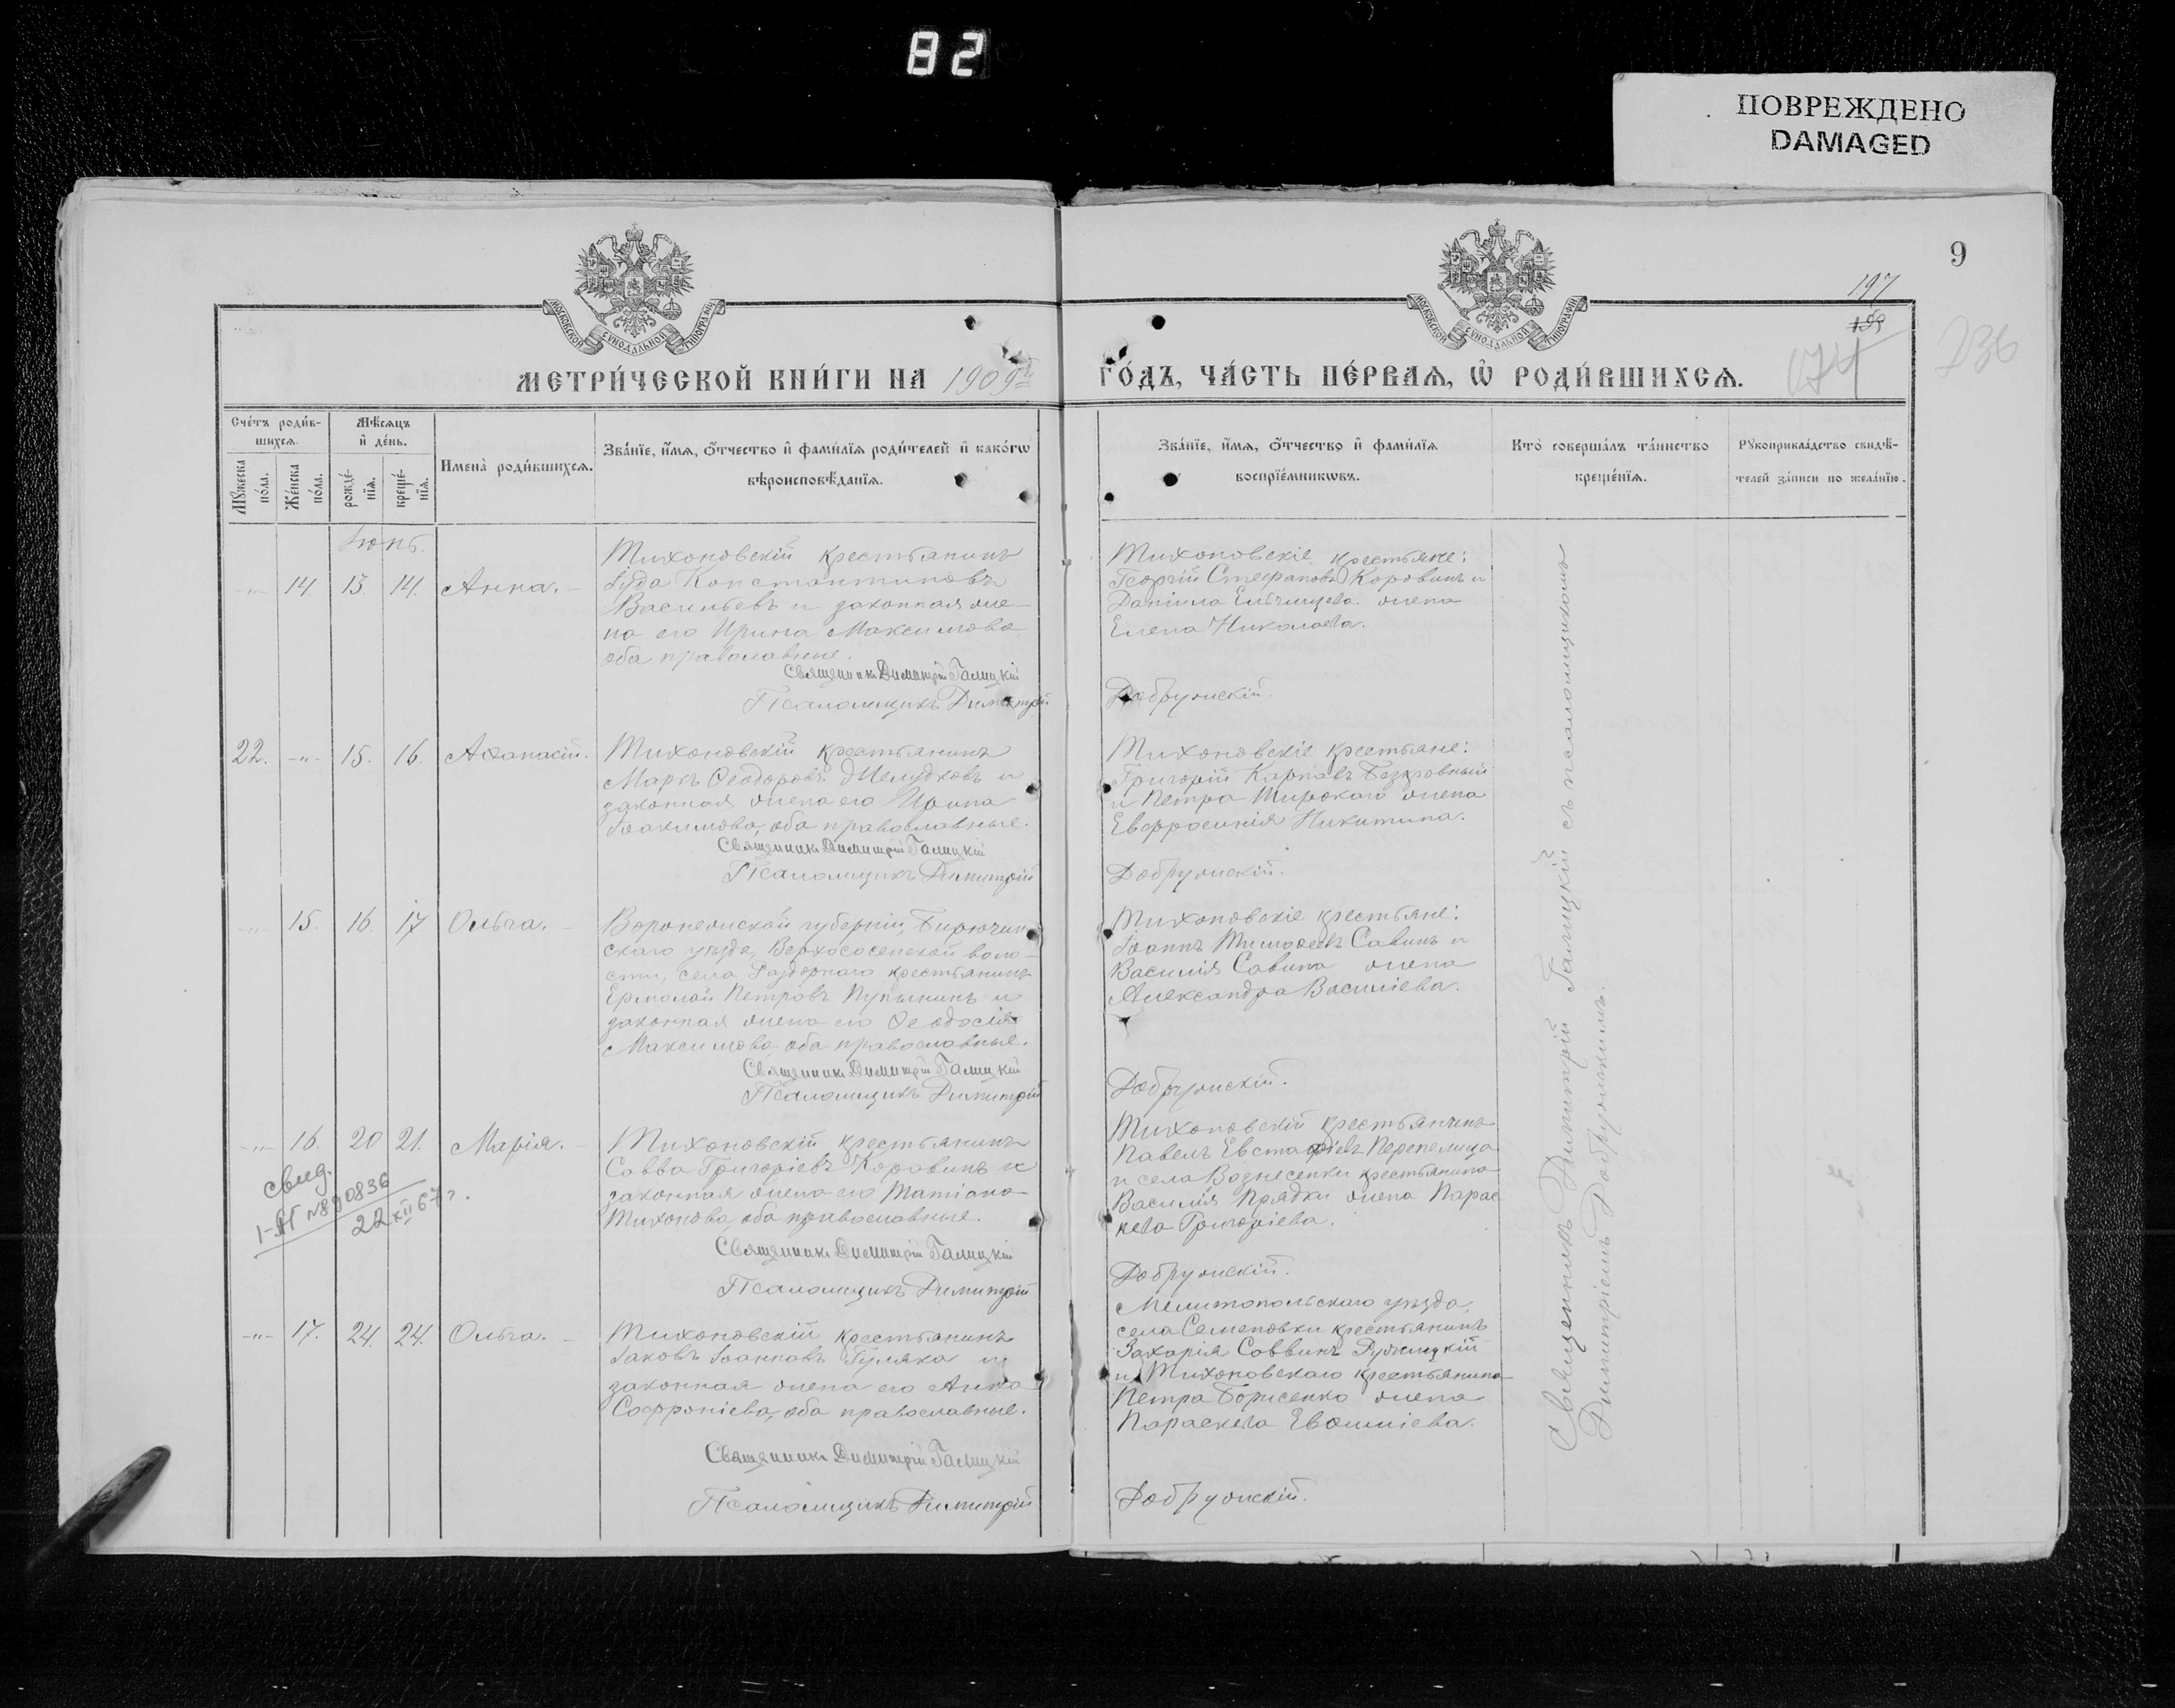 82
ПОВРЕЖДЕНО
DAMAGED
9
197
236
МОСКОВСКОЙ СѴНОДАЛЬНОЙ ТИПОГРАФІИ
МОСКОВСКОЙ СѴНОДАЛЬНОЙ ТИПОГРАФІИ
МЕТРИ́ЧЕСКОЙ КНИ́ГИ НА 1909й ГО́ДЪ, ЧА́СТЬ ПЕ́РВАѦ, Ѡ҆ РОДИ́ВШИХСѦ.
Сче́тъ роди́в-
шихсѧ.
Мѣ́сѧцъ
и҆ де́нь.
Мꙋ́жеска по́ла.
Же́нска по́ла.
рожде́-
нїѧ.
креще́-
нїѧ.
Имена̀ роди́вшихсѧ.
Зва́нїе, и҆́мѧ, ѻ҆́тчество и҆ фами́лїѧ роди́телей и҆ како́гѡ
вѣроисповѣ́данїѧ.
Зва́нїе, и҆́мѧ, ѻ҆́тчество и҆ фами́лїѧ
воспрїе́мникѡвъ.
Кто̀ соверша́лъ та́инство
креще́нїѧ.
Рꙋкоприкла́дство свидѣ́-
телей за́писи по жела́нїю.
Іюнь.
-"- 14. 13. 14. Анна.
Тихоновскій крестьянинъ
Іуда Константиновъ
Васильевъ и законная же-
на его Ирина Максимова
оба православные.
Священникъ Димитрій Галицкій
Псаломщикъ Димитрій
Тихоновскіе крестьяне:
Георгій Стефановъ Коровинъ и
Даніила Ельчищева жена
Елена Николаева.
Добружскій.
22. -"- 15. 16. Аѳанасій.
Тихоновскій крестьянинъ
Маркъ Ѳеодоровъ Желудковъ и
законная жена его Ирина
Іоакимова, оба православные.
Священникъ Димитрій Галицкій
Псаломщикъ Димитрій
Тихоновскіе крестьяне:
Григорій Карповъ Безкровный
и Петра Широкаго жена
Евфросинія Никитина.
Добружскій.
-"- 15. 16. 17. Ольга.
Воронежской губерніи, Бирючин-
скаго уѣзда, Верхососенской воло-
сти, села Раздорнаго крестьянинъ
Ермолай Петровъ Пупынинъ и
законная жена его Ѳеодосія
Максимова, оба православные.
Священникъ Димитрій Галицкій
Псаломщикъ Димитрій
Тихоновскіе крестьяне:
Іоаннъ Тимоѳеевъ Савинъ и
Василія Савина жена
Александра Василіева.
Добружскій.
-"- 16. 20 21. Марія.
свид.
1-АГ №890836
22 XII 67 г.
Тихоновскій крестьянинъ
Савва Григоріевъ Коровинъ и
законная жена его Татіана
Тихонова, оба православные.
Священникъ Димитрій Галицкій
Псаломщикъ Димитрій
Тихоновскій крестьянинъ
Павелъ Евстафіевъ Перепелица
и села Вознесенки крестьянина
Василія Прядки жена Парас
кева Григоріева.
Добружскій.
-"- 17. 24. 24. Ольга.
Тихоновскій крестьянинъ
Іаковъ Іоанновъ Гуляка и
законная жена его Анна
Софроніева, оба православные.
Священникъ Димитрій Галицкій
Псаломщикъ Димитрій
Мелитопольскаго уѣзда,
села Семеновки крестьянинъ
Захарія Саввинъ Рудницкій
и Тихоновскаго крестьянина
Петра Борисенко жена
Параскева Евѳиміева.
Добружскій.
Священникъ Димитрій Галицкій съ псаломщикомъ
Димитріемъ Добружскимъ.